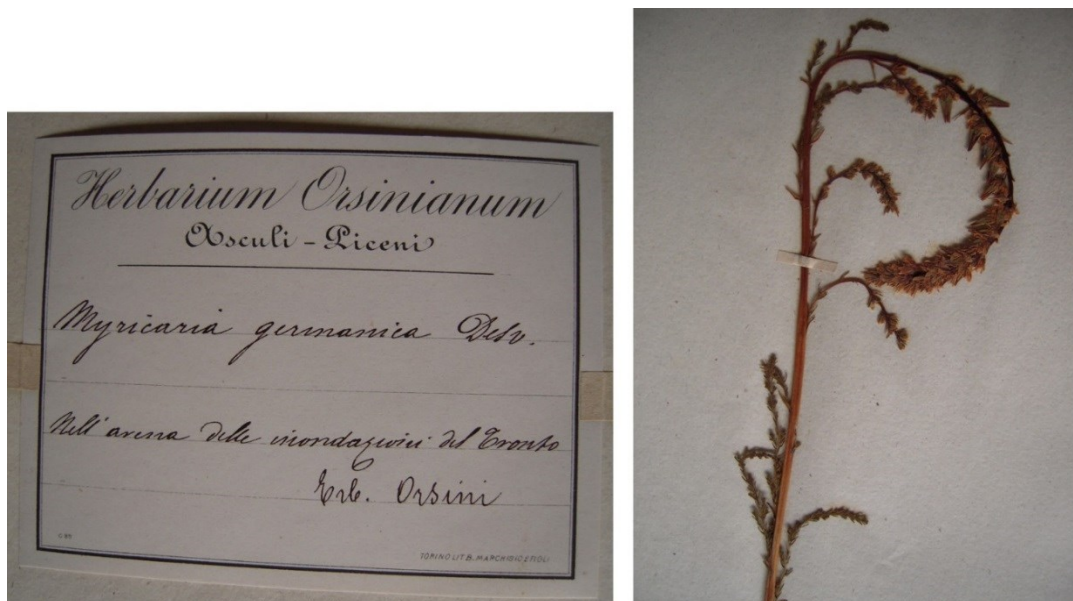 Herbarium Orsinianum
Asculi - Piceni
Myricaria germanica Desv.
Nell' arena delle inondazioni del Tronto
Erb. Orsini
TORINO LIT B. MARCHISIO E FIGLI